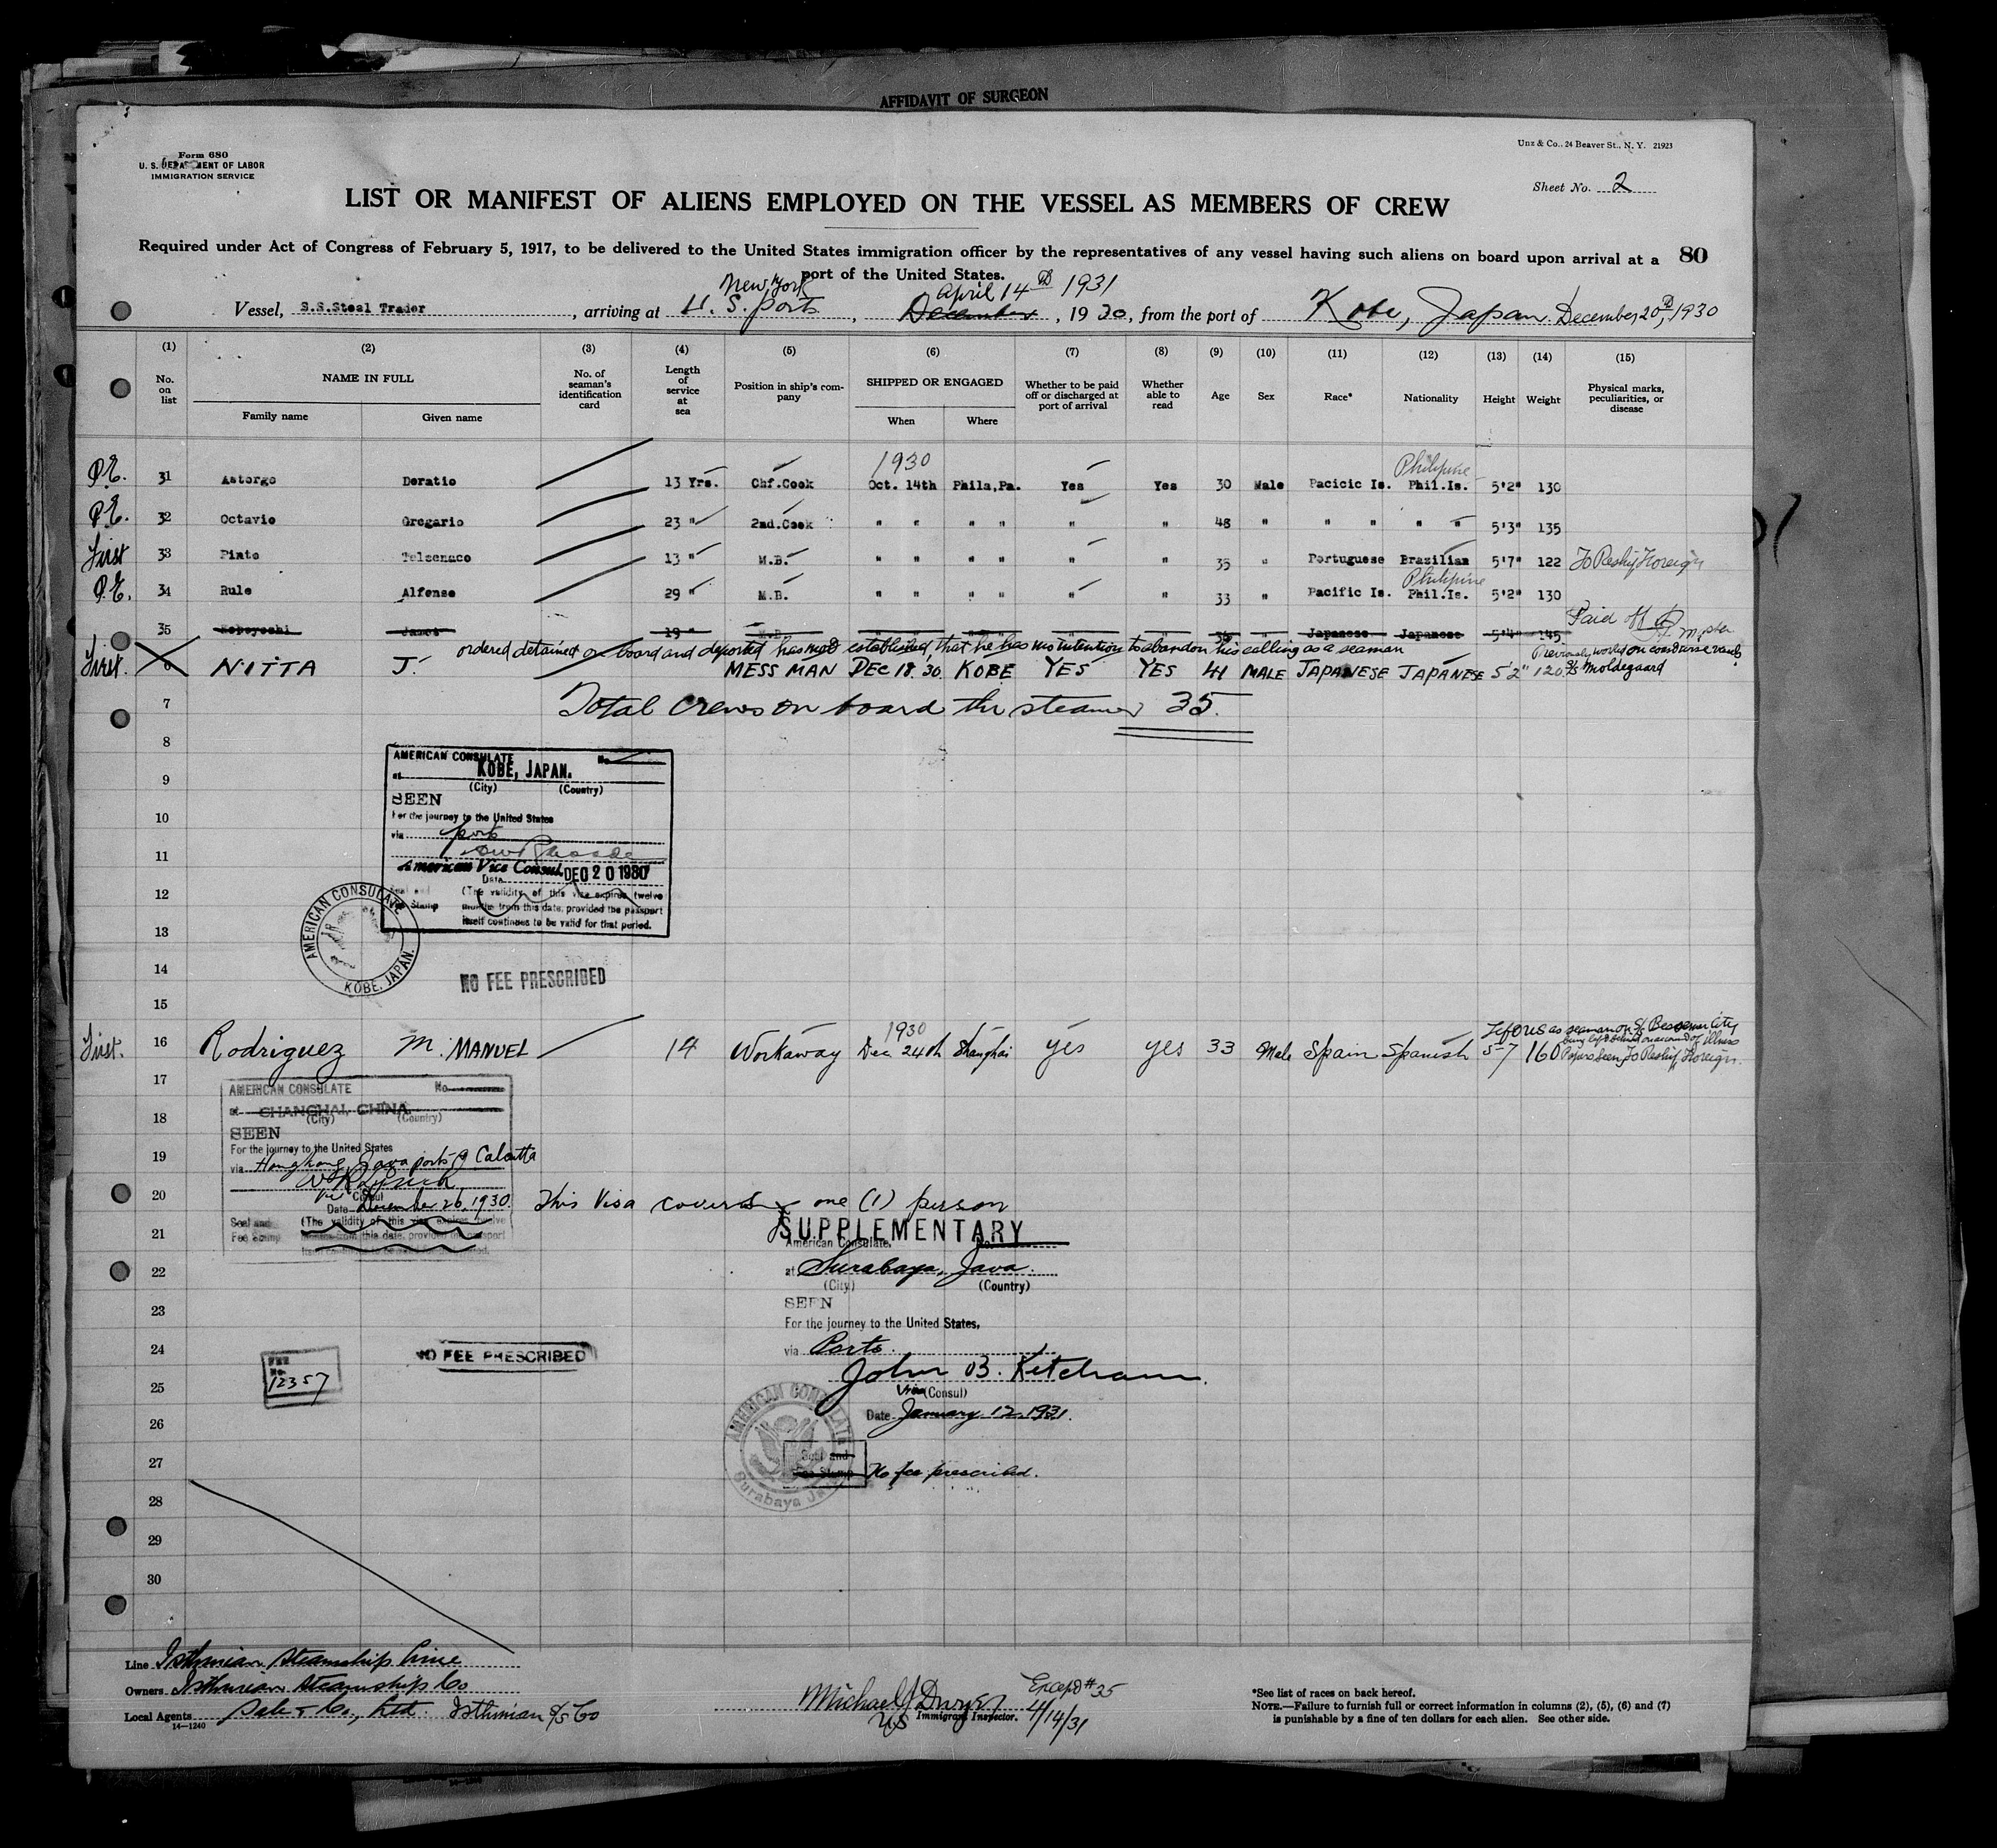 AFFIDAVIT OF SURGEON
Form 680
U. S. DEPARTMENT OF LABOR
IMMIGRATION SERVICE
Unz & Co., 24 Beaver St., N. Y. 21923
Sheet No. 2
LIST OR MANIFEST OF ALIENS EMPLOYED ON THE VESSEL AS MEMBERS OF CREW
Required under Act of Congress of February 5, 1917, to be delivered to the United States immigration officer by the representatives of any vessel having such aliens on board upon arrival at a 80
port of the United States.
New York April 14th 1931
Vessel, S.S.Steel Trader, arriving at U. S. ports, December, 1930, from the port of Kobe, Japan. December, 20th, 1930
(1) (2) (3) (4) (5) (6) (7) (8) (9) (10) (11) (12) (13) (14) (15)
No. on list
NAME IN FULL
Family name Given name
No. of seaman's identification card
Length of service at sea
Position in ship's company
SHIPPED OR ENGAGED
When Where
Whether to be paid off or discharged at port of arrival
Whether able to read
Age Sex Race* Nationality Height Weight
Physical marks, peculiarities, or disease
1930 Philipine
P.E. 31 Astorgo Doratio 13 Yrs. Chf.Cook Oct. 14th Phila,Pa. Yes Yes 30 Male Pacicic Is. Phil.Is. 5'2" 130
P.E. 32 Octavio Gregario 23 " 2nd.Cook " " " " " " 48 " " " " " 5'3" 135
First 33 Pinto Telesmaco 13 " M.B. " " " " " " 35 " Portuguese Brazilian 5'7" 122 To Reship Foreign
Philipine
P.E. 34 Rule Alfonso 29 " M.B. " " " " " " 33 " Pacific Is. Phil.Is. 5'2" 130
35 19 " M.B. " " " " " " " Japanese Japanese 5'4" 145 Paid off
ordered detained on board and deported has not established, that he has no intention to abandon his calling as a seaman
Previously worked on coastwise vessels
First. 6 NITTA J. MESS MAN DEC 18. 30. KOBE YES YES 41 MALE JAPANESE JAPANESE 5'2" 120. S/S Moldegaard
7 Total crews on board the steamer 35.
8
AMERICAN CONSULATE No
at KOBE, JAPAN.
(City) (Country)
9
SEEN
For the journey to the United States
10
via ports
11
American Vice Consul DEC 20 1930
Date
12
Seal and Fee Stamp
(The validity of this visa expires twelve
months from this date, provided the passport
itself continues to be valid for that period.
13
AMERICAN CONSULATE KOBE, JAPAN.
14
NO FEE PRESCRIBED
15
Left US as seaman on S/S Bessemer City
being left behind on account of illness
1930
First. 16 Rodriguez M. MANUEL 14 Workaway Dec 24th Shanghai yes yes 33 Male Spain Spanish 5-7 160 Papers Seen To Reship Foreign.
17
AMERICAN CONSULATE No
at SHANGHAI, CHINA
(City) (Country)
18
SEEN
For the journey to the United States
19
via Hongkong, Java ports & Calcutta
Vice Consul
20
Date December 26, 1930. This Visa covers one (1) person
Seal and Fee Stamp
(The validity of this visa expires twelve
months from this date, provided the passport
21
SUPPLEMENTARY
American Consulate, No.
22
at Surabaya, Java.
(City) (Country)
23
SEEN
For the journey to the United States,
24
via Ports.
NO FEE PRESCRIBED
FEE
No.
12357
25
John B. Ketcham
Vice (Consul)
26
Date January 12, 1931.
27
Seal and
Fee Stamp No fee prescribed.
AMERICAN CONSULATE Surabaya Java
28
29
30
Line Isthmian Steamship Line
Owners Isthmian Steamship Co
Local Agents Isthmian S/S Co
14—1240
Michael J Dwyer
US Immigrant Inspector.
Except #35
4/14/31
*See list of races on back hereof.
NOTE.—Failure to furnish full or correct information in columns (2), (5), (6) and (7)
is punishable by a fine of ten dollars for each alien. See other side.